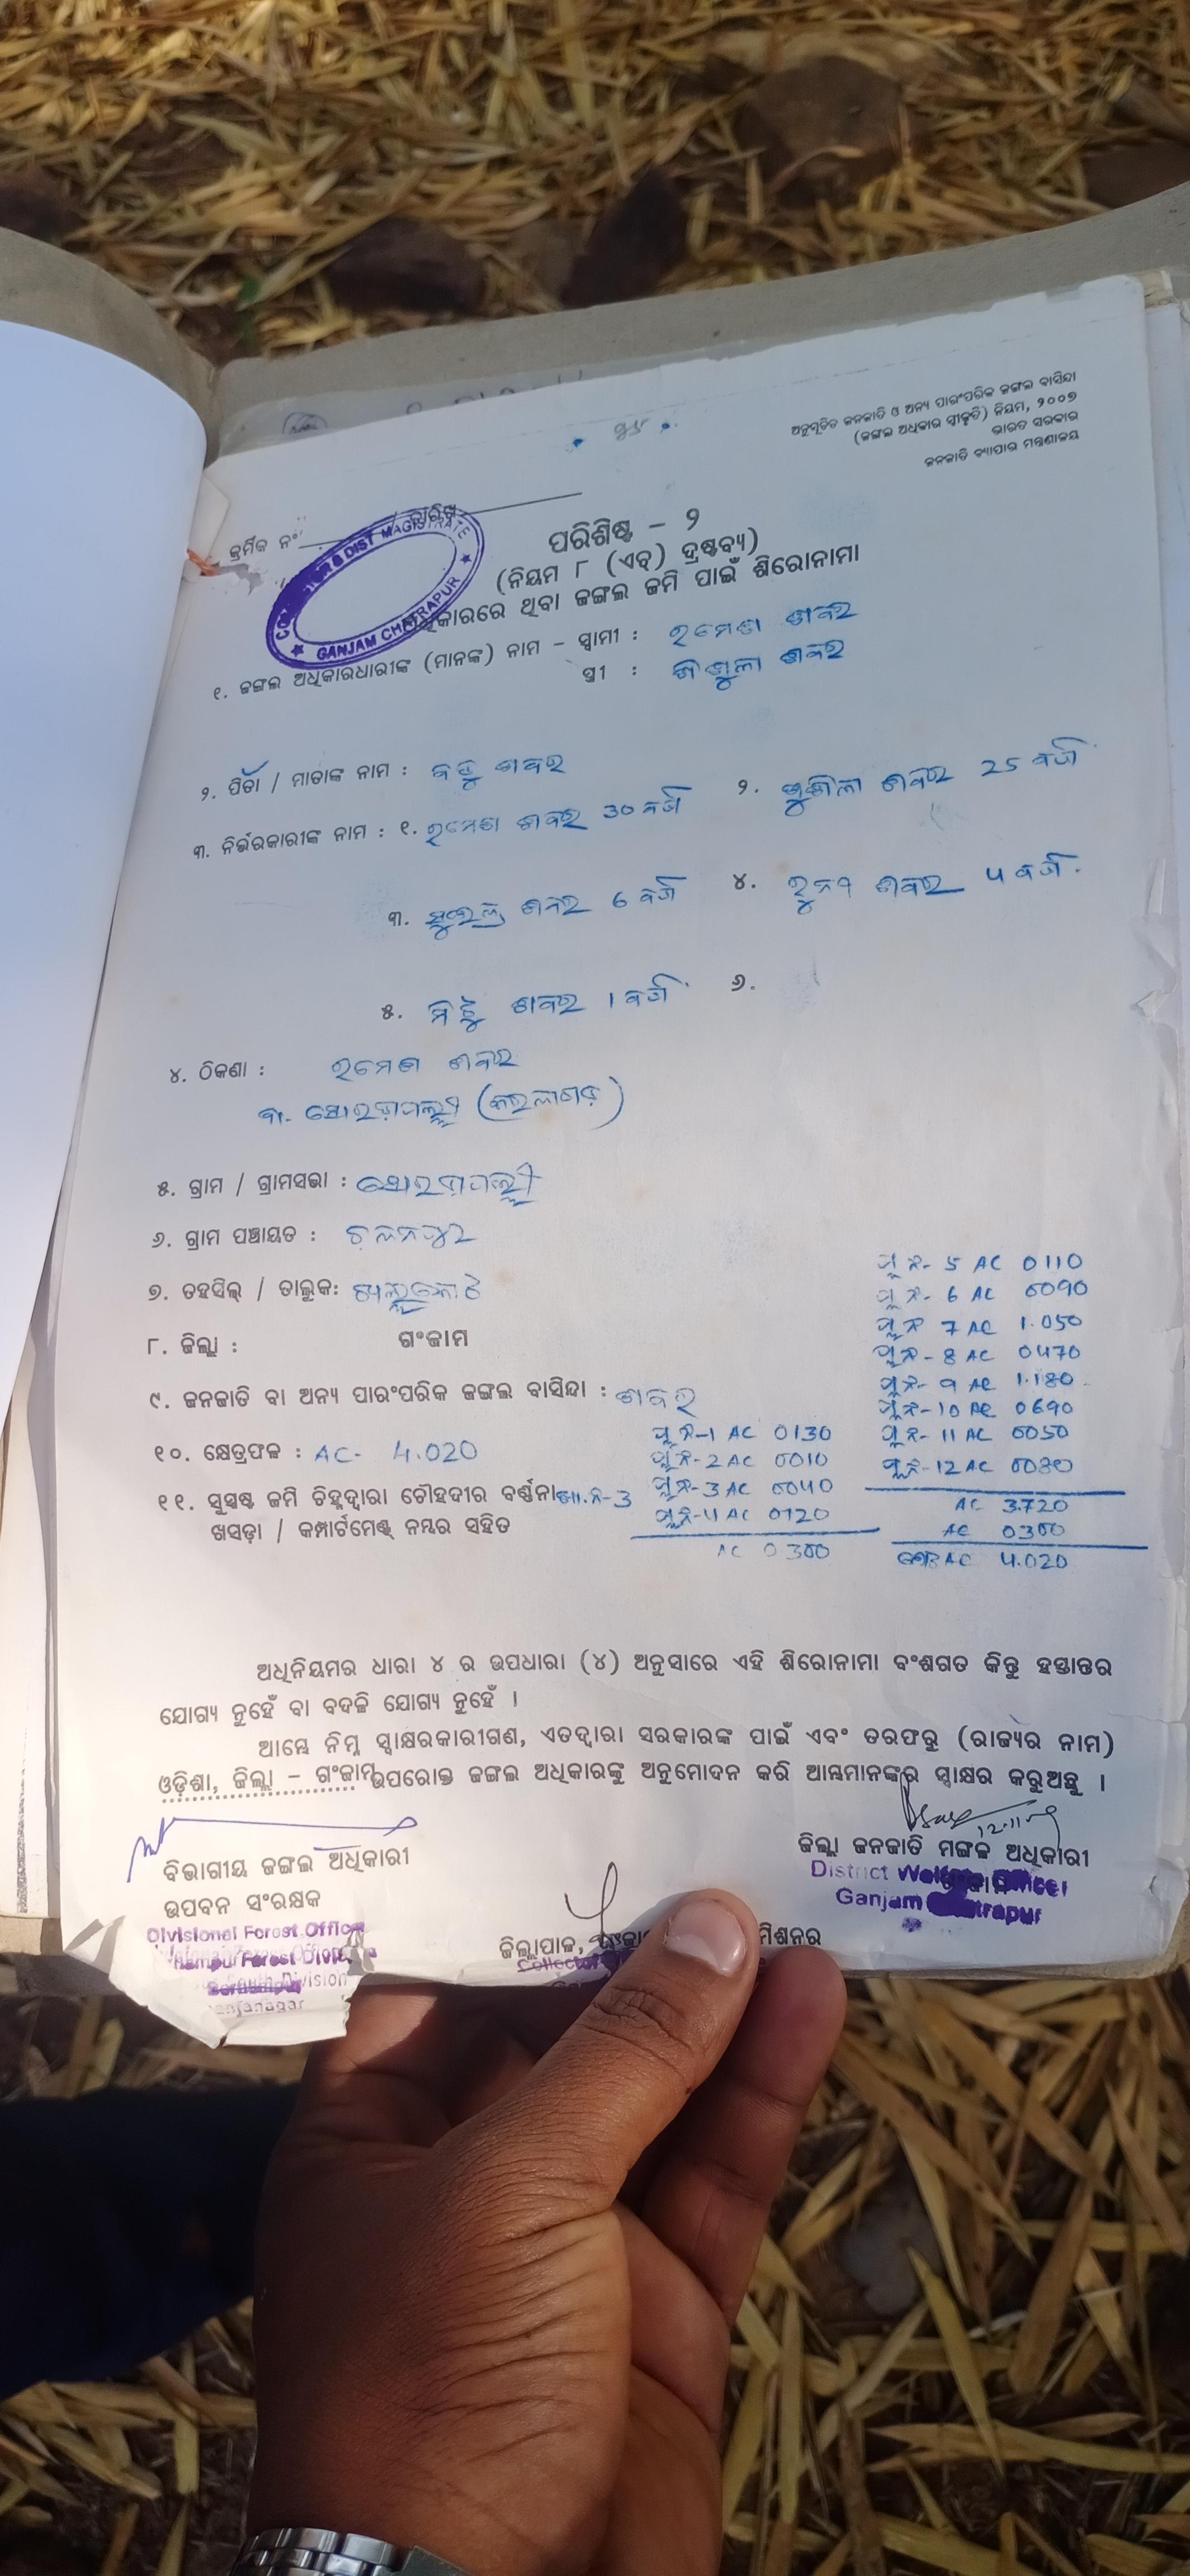 ଅନୁସୂଚିତ ଜନଜାତି ଓ ଅନ୍ୟ ପାରଂପରିକ ଜଙ୍ଗଲ ବାସିନ୍ଦା
(ଜଙ୍ଗଲ ଅଧିକାର ସ୍ୱୀକୃତି) ନିୟମ, ୨୦୦୭
ଭାରତ ସରକାର
ଜନଜାତି ବ୍ୟାପାର ମନ୍ତ୍ରଣାଳୟ
କ୍ରମିକ ନଂ ତାରିଖ
DIST MAGISTRATE
GANJAM CHATRAPUR
ପରିଶିଷ୍ଟ - ୨
(ନିୟମ ୮ (ଏଚ୍) ଦ୍ରଷ୍ଟବ୍ୟ)
ଥିବା ଜଙ୍ଗଲ ଜମି ପାଇଁ ଶିରୋନାମା
୧. ଜଙ୍ଗଲ ଅଧିକାରଧାରୀଙ୍କ (ମାନଙ୍କ) ନାମ - ସ୍ୱାମୀ : ରମେଶ ଶବର
ସ୍ତ୍ରୀ : ଶବର
୨. ପିତା / ମାତାଙ୍କ ନାମ : ଶବର
୩. ନିର୍ଭରକାରୀଙ୍କ ନାମ : ୧. ରମେଶ ଶବର 30 ବର୍ଷ ୨. ସୁଶିଳା ଶବର 25 ବର୍ଷ
୩. ଶବର 6 ବର୍ଷ ୪. ଶବର 4 ବର୍ଷ
୫. ଶବର 1 ବର୍ଷ ୬.
୪. ଠିକଣା : ରମେଶ ଶବର
୫. ଗ୍ରାମ / ଗ୍ରାମସଭା :
୬. ଗ୍ରାମ ପଞ୍ଚାୟତ :
୭. ତହସିଲ୍ / ତାଲୁକ:
୮. ଜିଲ୍ଲା : ଗଂଜାମ
୯. ଜନଜାତି ବା ଅନ୍ୟ ପାରଂପରିକ ଜଙ୍ଗଲ ବାସିନ୍ଦା : ଶବର
୧୦. କ୍ଷେତ୍ରଫଳ : AC- 4.020
୧୧. ସୁସ୍ପଷ୍ଟ ଜମି ଚିହ୍ନଦ୍ୱାରା ଚୌହଦୀର ବର୍ଣ୍ଣନା
ଖସଡ଼ା / କମ୍ପାର୍ଟମେଣ୍ଟ୍ ନମ୍ବର ସହିତ
ପ୍ଲନ-1 AC 0130
ପ୍ଲନ-2 AC 0010
ପ୍ଲନ-3 AC 0040
ପ୍ଲନ-4 AC 0120
AC 0300
ପ୍ଲନ- 5 AC 0110
ପ୍ଲନ- 6 AC 0090
ପ୍ଲନ 7 AC 1.050
ପ୍ଲନ- 8 AC 0470
ପ୍ଲନ- 9 AC 1.180
ପ୍ଲନ-10 AC 0690
ପ୍ଲନ- 11 AC 0050
ପ୍ଲନ-12 AC 0080
AC 3.720
AC 0300
AC 4.020
ଅଧିନିୟମର ଧାରା ୪ ର ଉପଧାରା (୪) ଅନୁସାରେ ଏହି ଶିରୋନାମା ବଂଶଗତ କିନ୍ତୁ ହସ୍ତାନ୍ତର
ଯୋଗ୍ୟ ନୁହେଁ ବା ବଦଳି ଯୋଗ୍ୟ ନୁହେଁ ।
ଆମ୍ଭେ ନିମ୍ନ ସ୍ୱାକ୍ଷରକାରୀଗଣ, ଏତଦ୍ୱାରା ସରକାରଙ୍କ ପାଇଁ ଏବଂ ତରଫରୁ (ରାଜ୍ୟର ନାମ)
ଓଡ଼ିଶା, ଜିଲ୍ଲା - ଗଂଜାମ ଉପରୋକ୍ତ ଜଙ୍ଗଲ ଅଧିକାରଙ୍କୁ ଅନୁମୋଦନ କରି ଆମ୍ଭମାନଙ୍କର ସ୍ୱାକ୍ଷର କରୁଅଛୁ ।
ବିଭାଗୀୟ ଜଙ୍ଗଲ ଅଧିକାରୀ
ଉପବନ ସଂରକ୍ଷକ
Divisional Forest Officer
ଜିଲ୍ଲା ଜନଜାତି ମଙ୍ଗଳ ଅଧିକାରୀ
District
Ganjam
ଜିଲ୍ଲାପାଳ,
Collector